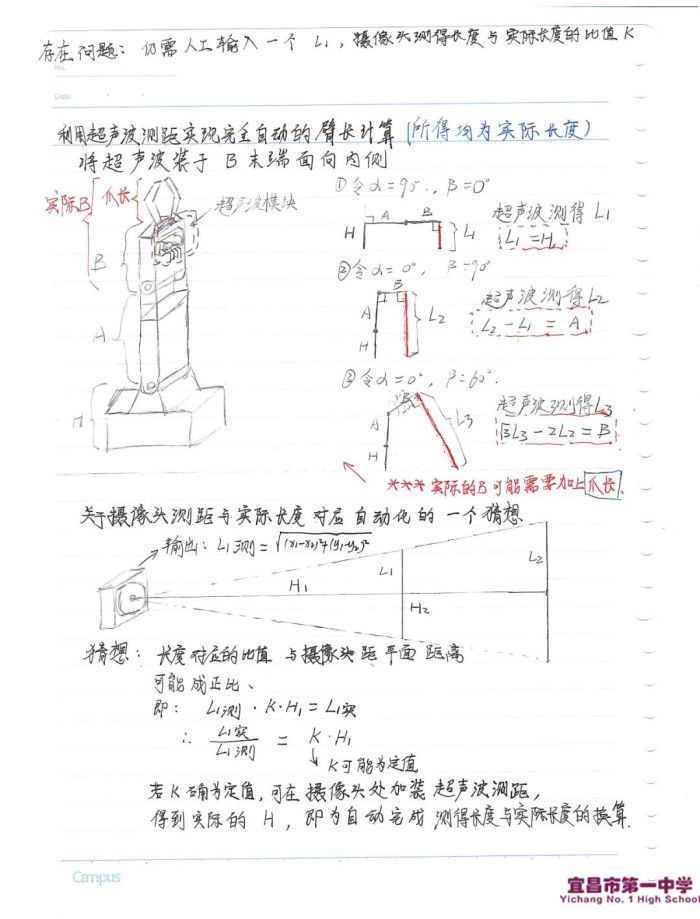 存在问题：仍需人工输入一个 L₁，摄像头测得长度与实际长度的比值 K
No.
Date
利用超声波测距实现完全自动的臂长计算（所得均为实际长度）
将超声波装于 B 末端面向内侧
实际B
爪长
超声波模块
B
A
H
①令α=90°，β=0°
A
B
H
L₁
超声波测得 L₁
L₁=H
②令α=0°，β=90°
B
A
H
L₂
超声波测得L₂
L₂-L₁=A
③令α=0°，β=60°.
B
A
H
L₃
超声波测得L₃
√3L₃-2L₂=B
*** 实际的B可能需要加上爪长.
关于摄像头测距与实际长度对应自动化的一个猜想
输出：L₁测=√(x₁-x₂)²+(y₁-y₂)²
H₁
L₁
H₂
L₂
猜想：长度对应的比值与摄像头距平面距离
可能成正比、
即：L₁测·K·H₁=L₁实
∴ L₁实/L₁测 = K·H₁
K可能为定值
若K确为定值，可在摄像头处加装超声波测距，
得到实际的H，即为自动完成测得长度与实际长度的换算.
Campus
宜昌市第一中学
Yichang No. 1 High School